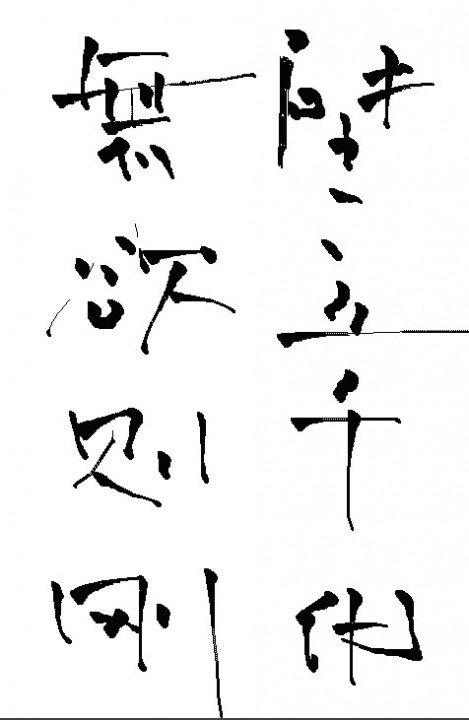 壁立千仞
無欲則剛